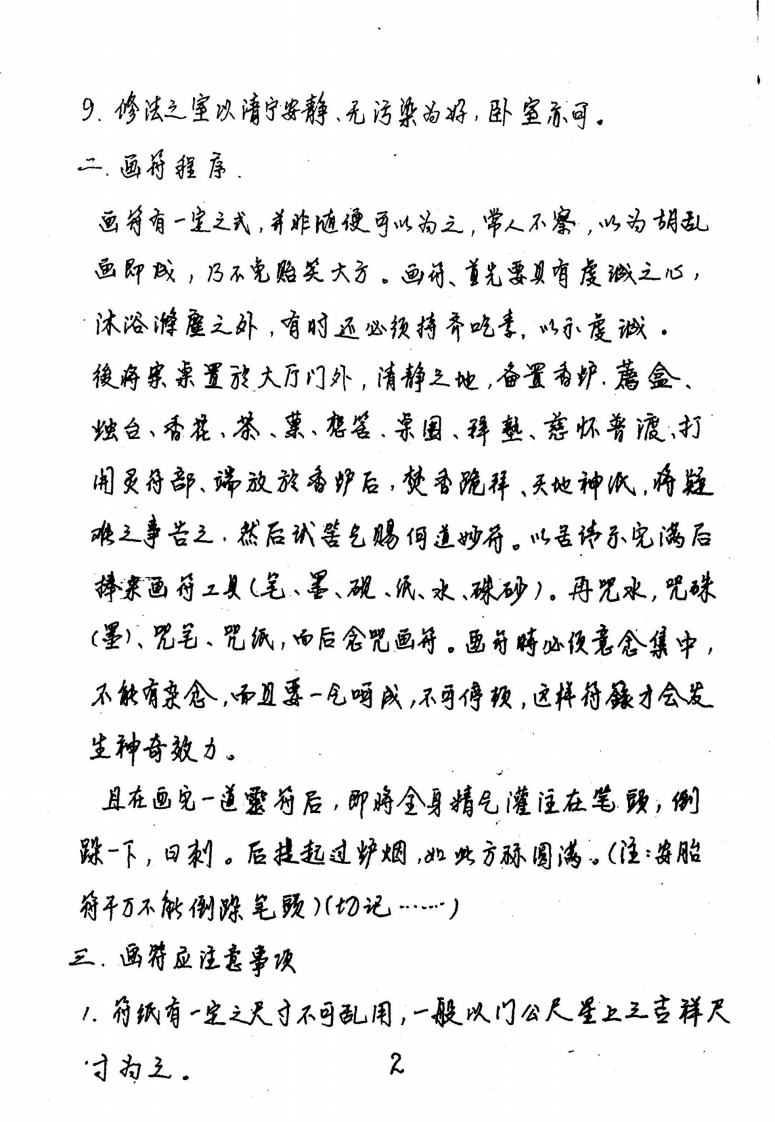 9. 修法之室以清宁安静、无污染为好，卧室亦可。
二. 画符程序.
画符有一定之式，并非随便可以为之，常人不察，以为胡乱
画即成，乃不免贻笑大方。画符、首先要具有虔诚之心，
沐浴滌塵之外，有时还必须持斋吃素，以示虔诚。
後将案桌置於大厅门外，清静之地，备置香炉、薦盒、
烛台、香花、茶、菓、桌围、拜墊、慈怀普渡、打
開灵符部、端放於香炉后，焚香跪拜、天地神祇，将疑
难之事告之. 然后试筶乞赐何道妙符。以筶请示完满后
捧来画符工具(笔、墨、砚、纸、水、硃砂)。再咒水，咒硃
(墨)、咒笔、咒纸，而后念咒画符。画符時必须意念集中，
不能有杂念，而且要一气呵成，不可停顿，这样符籙才会发
生神奇效力。
且在画完一道靈符后，即将全身精气灌注在笔頭，倒
跺一下，曰刺。后提起过炉烟，如此方称圆满。(注:安胎
符千万不能倒跺笔頭)(切记……)
三. 画符应注意事项
1. 符纸有一定之尺寸不可乱用，一般以门公尺星上之吉祥尺
寸为之。
2